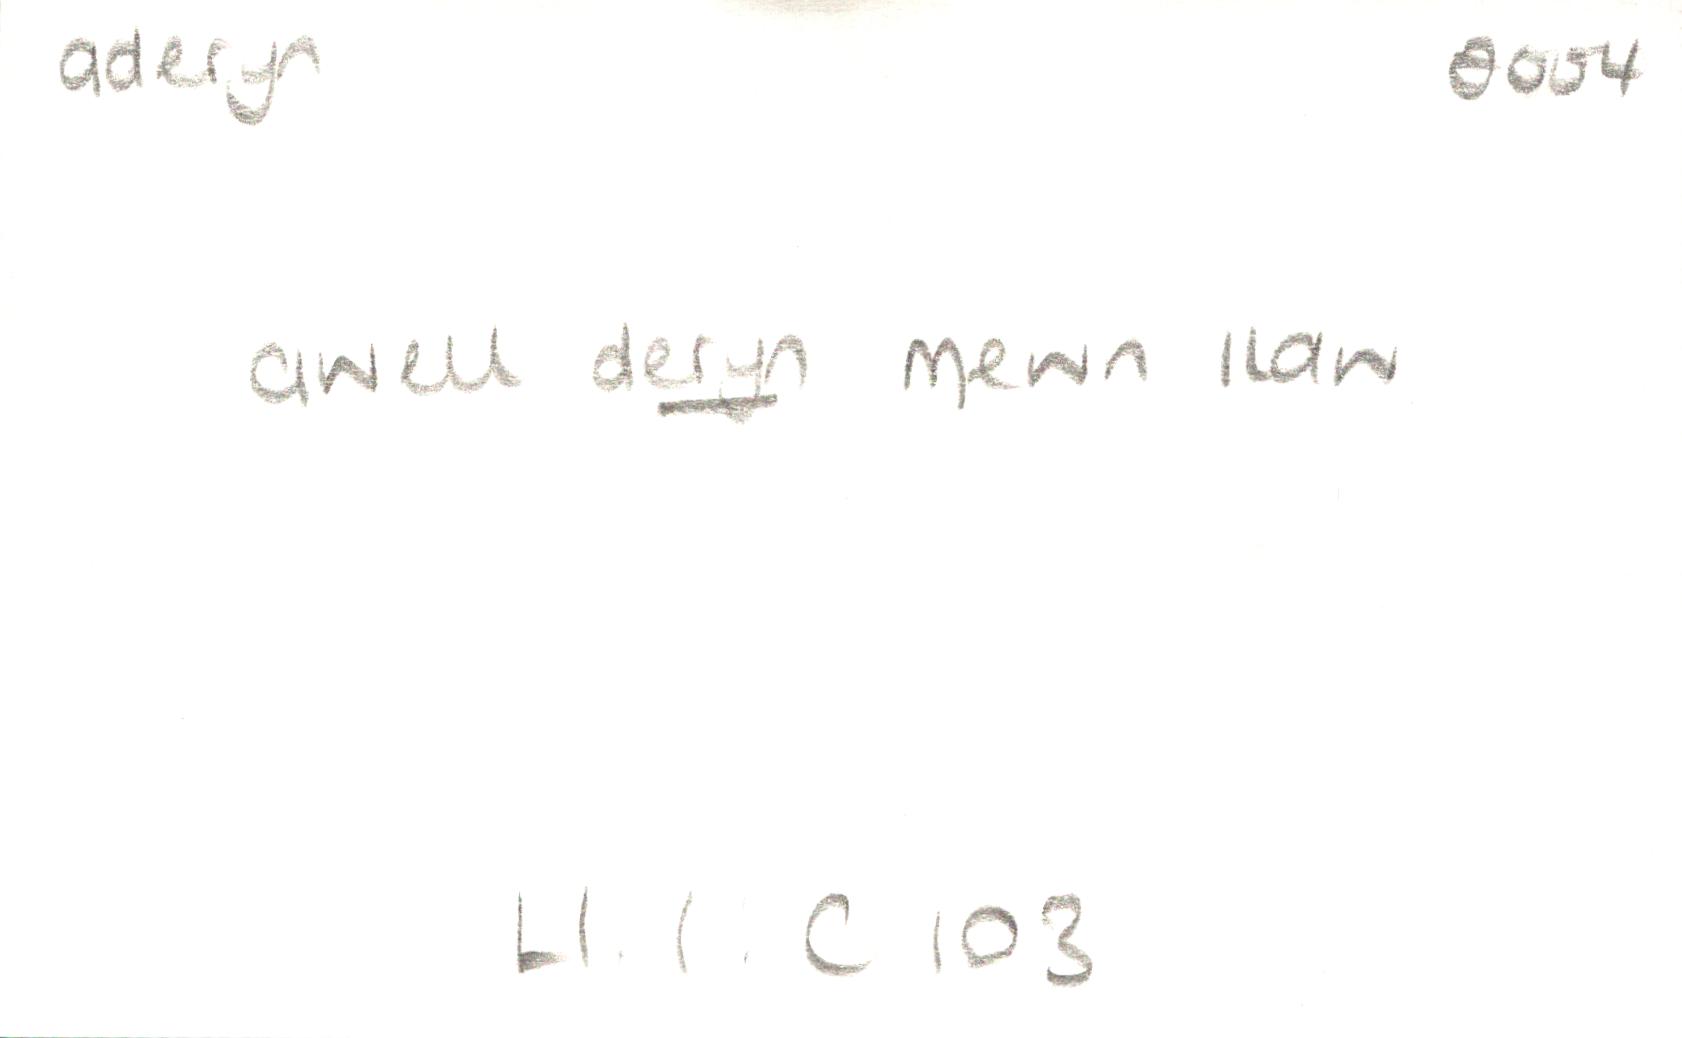 aderyn 8004
awell deryn mewn llaw
Ll. 1. C 103